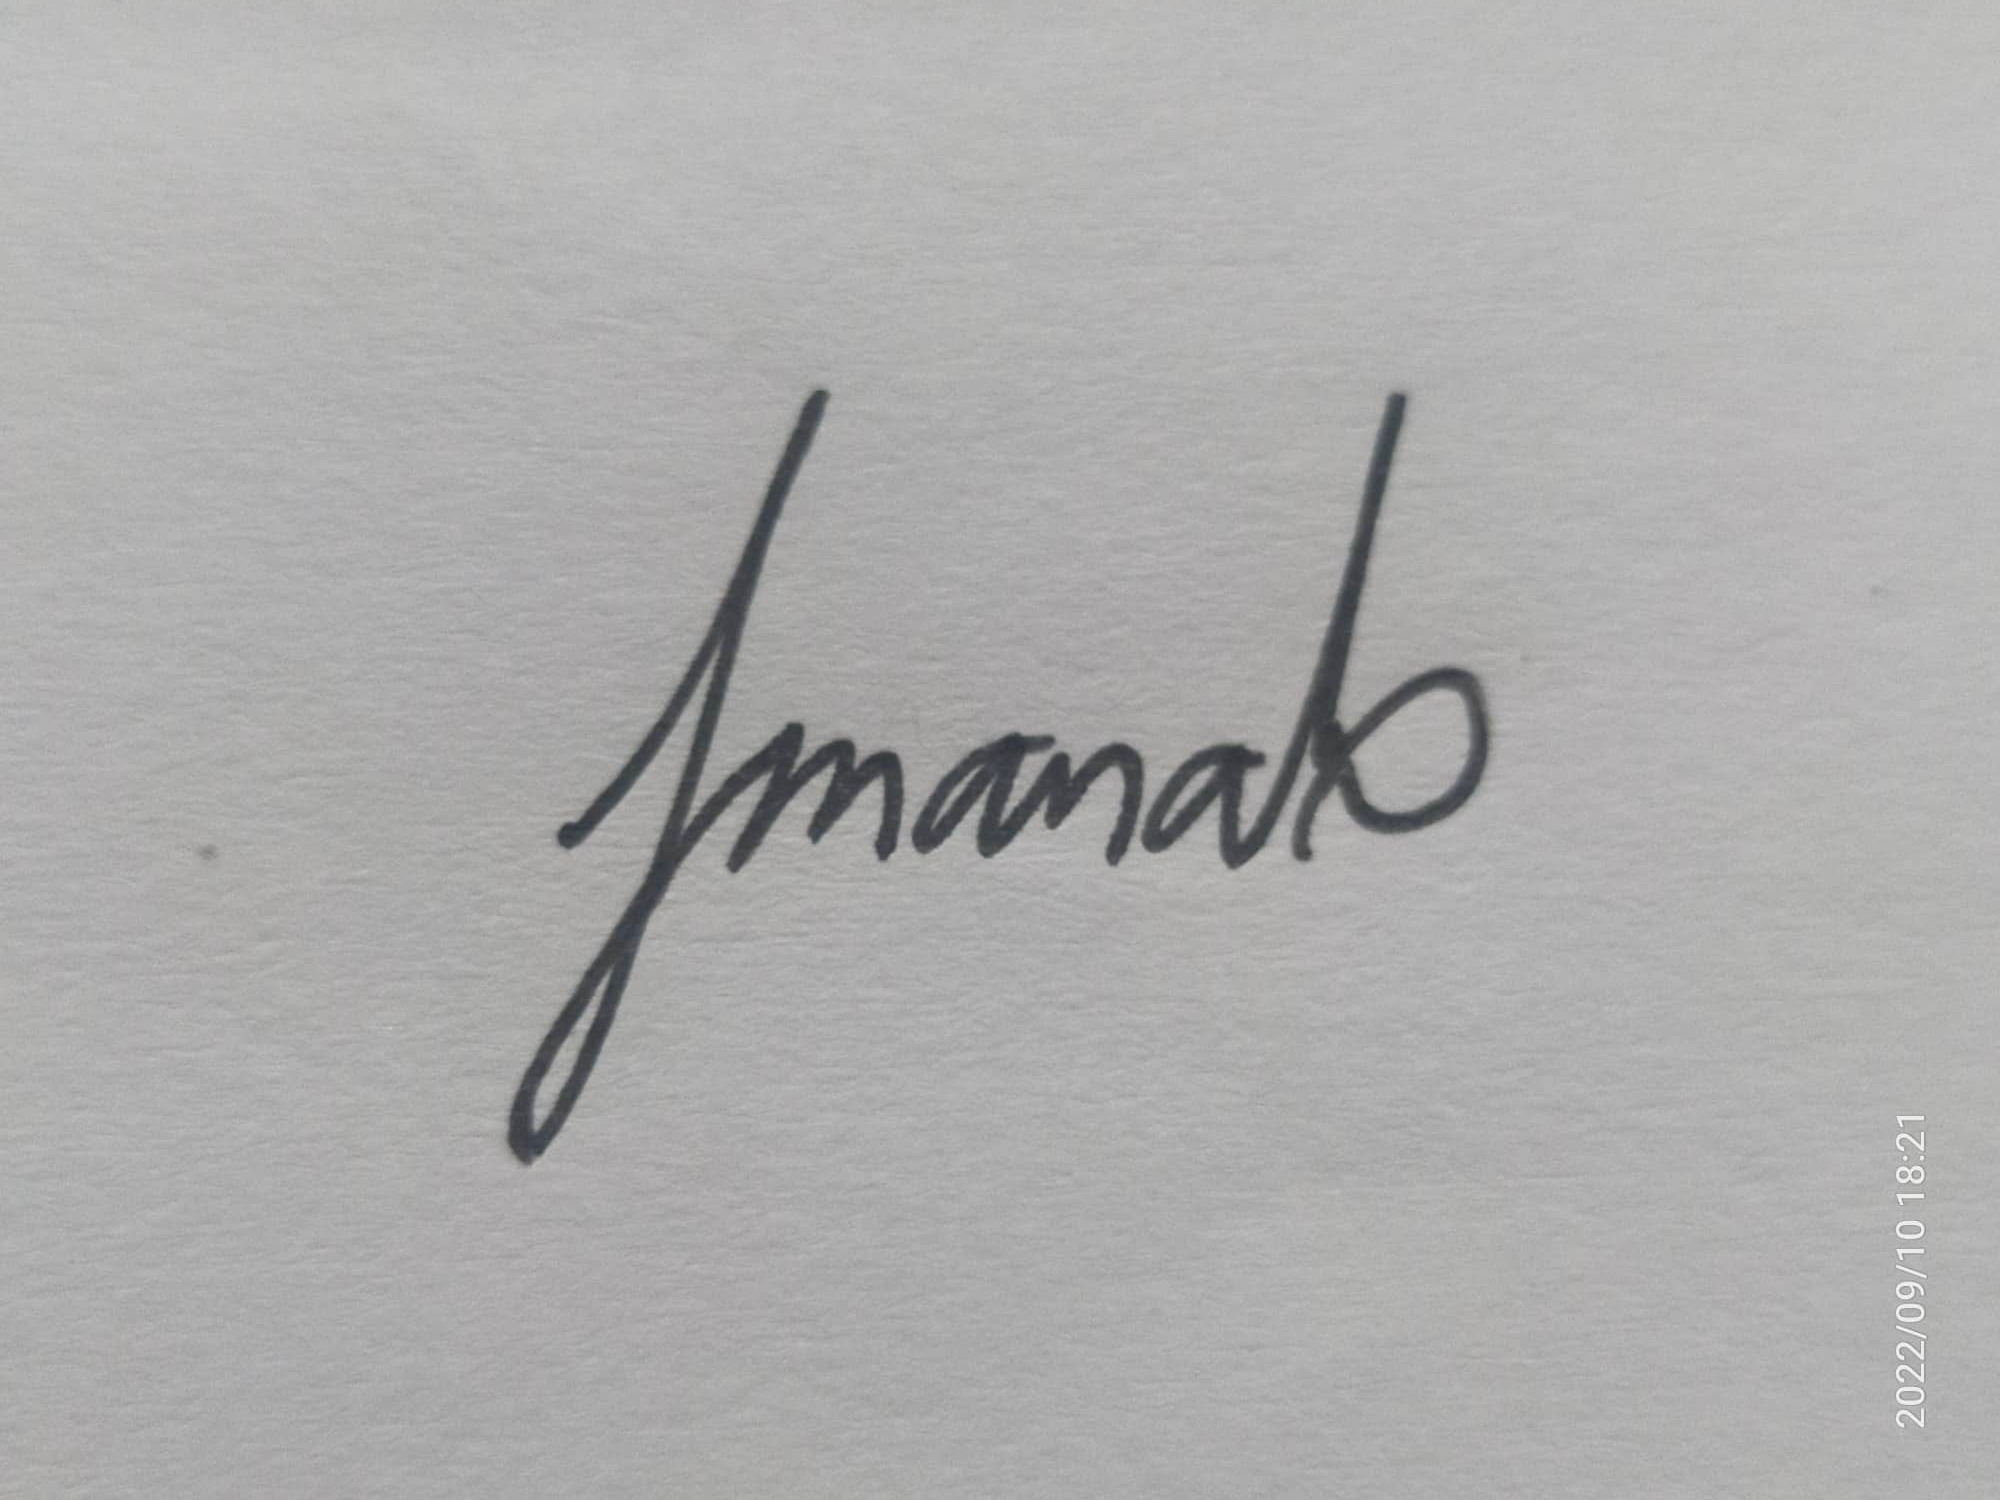 Jmanab
2022/09/10 18:21